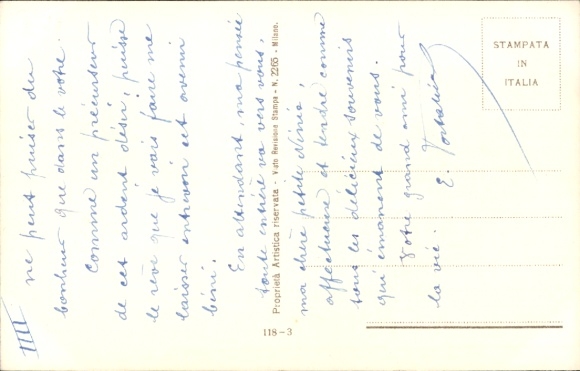 IIII
ne peut puiser du
bonheur que dans le votre.
Comme un précurseur
de cet ardent désir, puisse
le rêve que je vais faire me
laisser entrevoir cet avenir
béni.
En attendant, ma pensée
toute entière va vers vous,
ma chère petite Ninie,
affectueuse et tendre comme
tous les délicieux souvenirs
qui émanent de vous.
Votre grand ami pour
la vie.
E.
Proprietà Artistica riservata - Visto Revisione Stampa - N. 2265 - Milano.
118-3
STAMPATA
IN
ITALIA